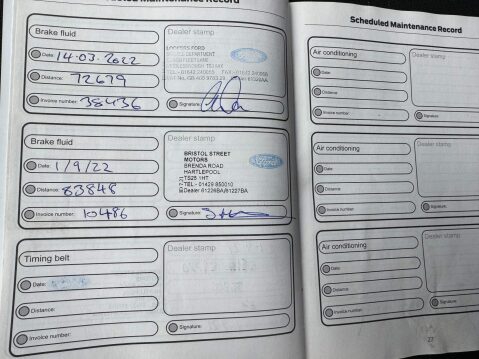 Maintenance Record
Brake fluid
Date: 14-03-2022
Distance: 72679
Invoice number: 38436
Dealer stamp
FORD
DEPARTMENT
LANE
TEL - 01642 240055 FAX -
Signature:
Brake fluid
Date: 1/9/22
Distance: 83848
Invoice number: 10486
Dealer stamp
BRISTOL STREET
MOTORS
BRENDA ROAD
HARTLEPOOL
TS25 1HT
TEL - 01429 850010
Dealer 61226BA/61227BA
Ford
Signature:
Timing belt
Date:
Distance:
Invoice number:
Dealer stamp
Signature:
Scheduled Maintenance Record
Air conditioning
Date:
Distance:
Invoice number:
Dealer stamp
Signature:
Air conditioning
Date:
Distance:
Invoice number:
Dealer stamp
Signature:
Air conditioning
Date:
Distance:
Invoice number:
Dealer stamp
Signature:
27